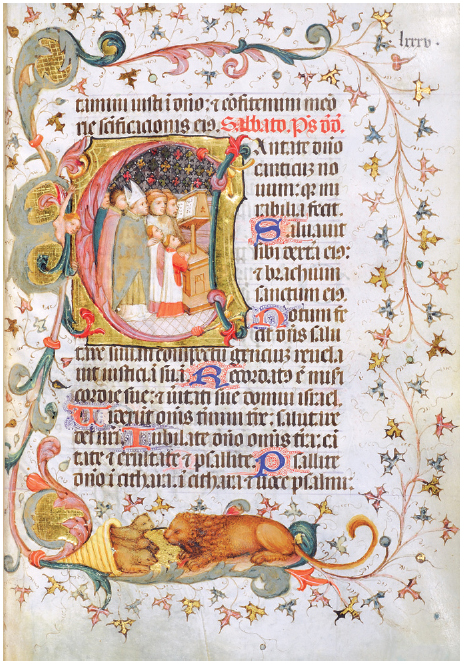 lxxxv.
tamini iusti ī dn̄o: ⁊ cōfitemini meo
rie sc̄ificacionis eiꝰ. Sabbato. Ps dd.
Cantate dn̄o
canticū no
uum: qꝛ mi
rabilia fecit.
Saluauit
sibi dextera eiꝰ:
⁊ brachium
sanctum eiꝰ.
Notum fe
cit dn̄s salu
tare suū in cōspectu genciū reuela
uit iusticiā suā. Recordatꝰ ē mis̄i
cordie sue: ⁊ ū̄itati sue domui israel.
Uiderūt om̄s fines tr̄e: salutare
dei nr̄i. Iubilate dn̄o om̄is tr̄a: cā
tate ⁊ exultate ⁊ psallite. Psallite
dn̄o ī cithara. ī cithara ⁊ uoce psalmi: